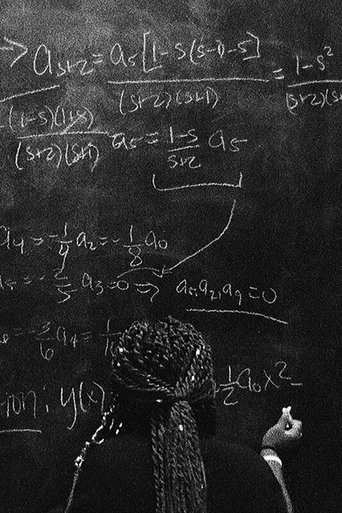 → a_{s+2} = a_s[1-s(s-1)-s] / (s+2)(s+1) = 1-s² / (s+2)(s
(1-s)(1+s) / (s+2)(s+1) a_s = 1-s / s+2 a_s
a₄ = -1/4 a₂ = -1/8 a₀
a₃ = 0 ⇒ a₅, a₇, a₉ = 0
-3/6 a₄ = 1/1
ion: y(x)
1/2 a₀x² -